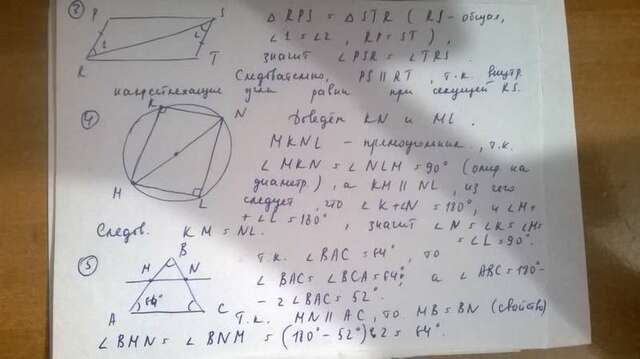 3
P S
R T
1 2
△ RPS = △ STR ( RS - общая,
∠1 = ∠2 , RP = ST ) ,
значит ∠PSR = ∠TRS .
Следовательно, PS ∥ RT , т.к. внутр.
накрестлежащие углы равны при секущей RS.
4
K N
M L
Доведём KN и ML .
MKNL - прямоугольник , т.к.
∠MKN = ∠NLM = 90° (опир. на
диаметр.) , а KM ∥ NL , из чего
следует, что ∠K + ∠N = 180° , и ∠M +
+ ∠L = 180° , значит ∠N = ∠K = ∠M =
= ∠L = 90°.
Следов. KM = NL.
5
B
M N
A 64° C
Т.к. ∠BAC = 64° , то
∠BAC = ∠BCA = 64°, а ∠ABC = 180° -
- 2∠BAC = 52°.
Т.к. MN ∥ AC, то MB = BN (свойство)
∠BMN = ∠BNM = (180° - 52°) : 2 = 64°.